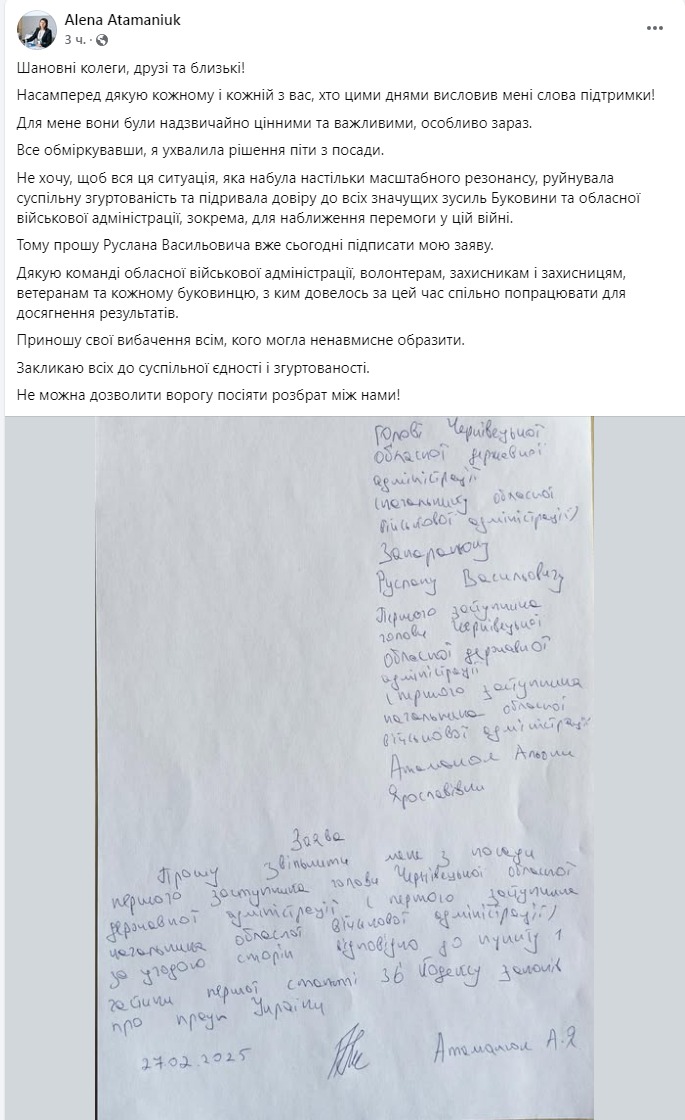 Alena Atamaniuk
3 ч. ·
Шановні колеги, друзі та близькі!
Насамперед дякую кожному і кожній з вас, хто цими днями висловив мені слова підтримки!
Для мене вони були надзвичайно цінними та важливими, особливо зараз.
Все обміркувавши, я ухвалила рішення піти з посади.
Не хочу, щоб вся ця ситуація, яка набула настільки масштабного резонансу, руйнувала
суспільну згуртованість та підривала довіру до всіх значущих зусиль Буковини та обласної
військової адміністрації, зокрема, для наближення перемоги у цій війні.
Тому прошу Руслана Васильовича вже сьогодні підписати мою заяву.
Дякую команді обласної військової адміністрації, волонтерам, захисникам і захисницям,
ветеранам та кожному буковинцю, з ким довелось за цей час спільно попрацювати для
досягнення результатів.
Приношу свої вибачення всім, кого могла ненавмисне образити.
Закликаю всіх до суспільної єдності і згуртованості.
Не можна дозволити ворогу посіяти розбрат між нами!
Голові Чернівецької
обласної державної
адміністрації
(начальнику обласної
військової адміністрації)
Запаранюку
Руслану Васильовичу
Першого заступника
голови Чернівецької
обласної державної
адміністрації
(першого заступника
начальника обласної
військової адміністрації
Атаманюк Альони
Ярославівни
Заява
Прошу звільнити мене з посади
першого заступника голови Чернівецької обласної
державної адміністрації (першого заступника
начальника обласної військової адміністрації)
за угодою сторін відповідно до пункту 1
частини першої статті 36 Кодексу законів
про працю України
27.02.2025 Атаманюк А.Я